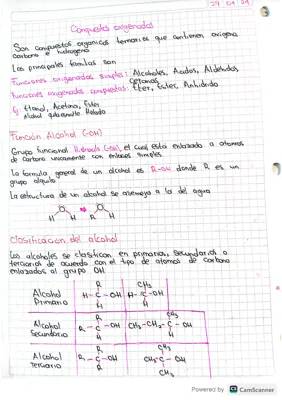 29 04 24
Compuestos oxigenados
Son compuestos organicos ternarios que contienen oxigeno,
carbono e hidrogeno
Las principales familias son
Funciones oxigenadas simples: Alcoholes, Acidos, Aldehidos,
Cetonas
Funciones oxigenadas compuestas: Eter, Ester, Anhidrido
Ej Etanol, Acetona, Ester
Alcohol quitaesmalte Helado
Función Alcohol (-OH)
Grupo funcional (-OH), el cual esta enlazado a atomos
de carbono unicamente con enlaces simples
La formula general de un alcohol es R-OH donde R es un
grupo alquilo
La estructura de un alcohol se asemeja a la del agua
O O
H H R H
Clasificación del alcohol
Los alcoholes se clasifican en primarios, secundarios o
terciarios de acuerdo con el tipo de atomos de carbono
enlazados al grupo OH
Alcohol Primario
R
H-C-OH
H
CH3
H-C-OH
H
Alcohol secundario
R
R-C-OH
H
CH3
CH3-CH2-C-OH
H
Alcohol terciario
R
R-C-OH
R
CH3
CH3-C-OH
CH3
Powered by CS CamScanner